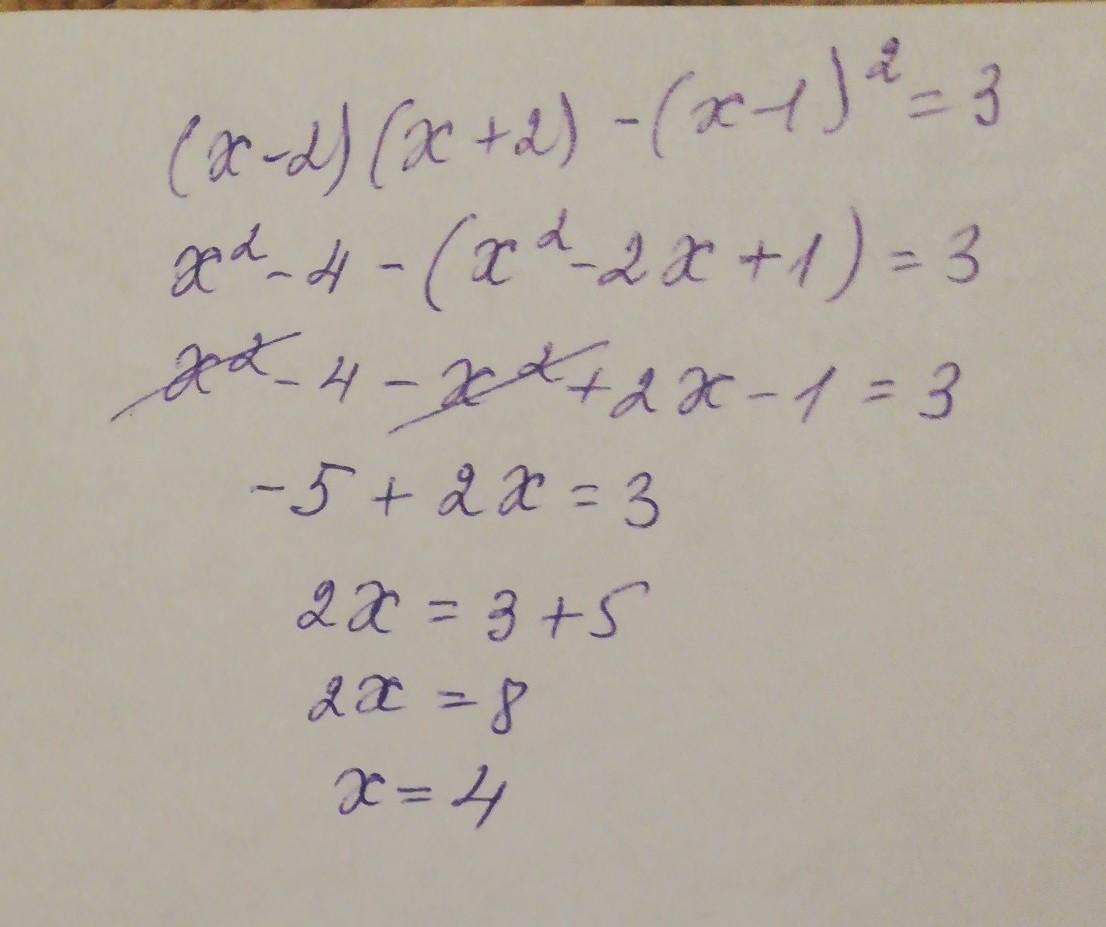 (x-2)(x+2)-(x-1)²=3
x²-4-(x²-2x+1)=3
x²-4-x²+2x-1=3
-5+2x=3
2x=3+5
2x=8
x=4